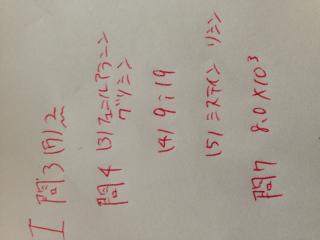 I
問3 (ア) 2
問4 (3) フェニルアラニン
グリシン
(4) 9:19
(5) システイン リシン
問7 8.0×10³